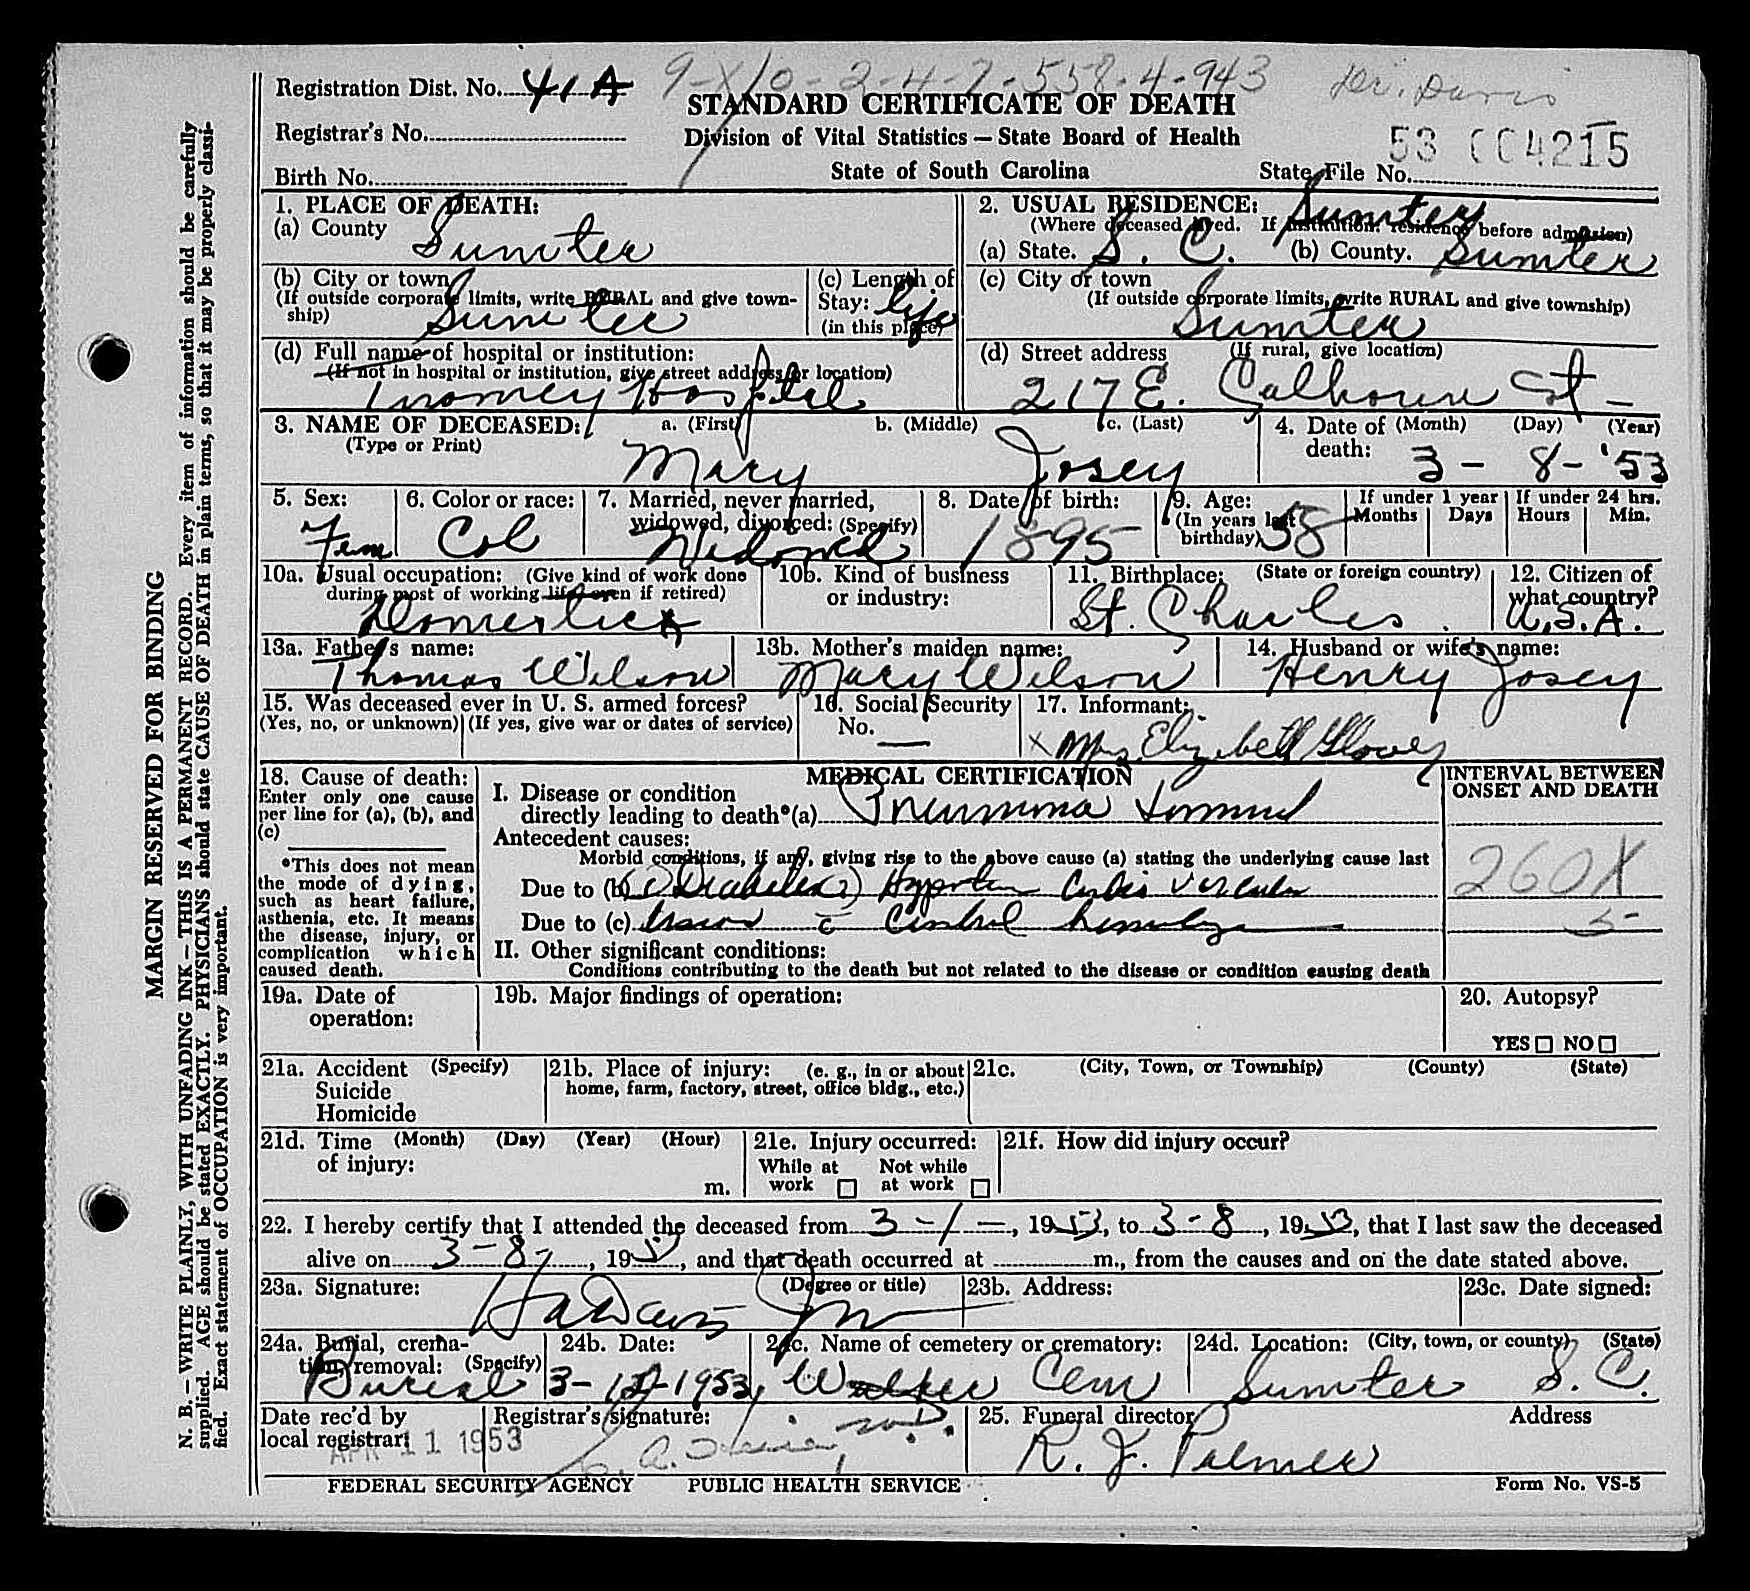 Registration Dist. No. 41 A 9-X10-2-4-7-558-4-943 Dr. Davis
STANDARD CERTIFICATE OF DEATH
Registrar's No. Division of Vital Statistics — State Board of Health 53 004215
Birth No. State of South Carolina State File No.
1. PLACE OF DEATH: 2. USUAL RESIDENCE: Sumter
(Where deceased lived. If institution: residence before admission)
(a) County Sumter (a) State. S. C. (b) County. Sumter
(b) City or town (c) Length of (c) City or town
(If outside corporate limits, write RURAL and give town- Stay: life (If outside corporate limits, write RURAL and give township)
ship) Sumter (in this place) Sumter
(d) Full name of hospital or institution: (d) Street address (If rural, give location)
(If not in hospital or institution, give street address or location)
Tuomey Hospital 217 E. Calhoun St
3. NAME OF DECEASED: a. (First) b. (Middle) c. (Last) 4. Date of (Month) (Day) (Year)
(Type or Print) Mary Josey death: 3 - 8 - '53
5. Sex: 6. Color or race: 7. Married, never married, 8. Date of birth: 9. Age: If under 1 year If under 24 hrs.
widowed, divorced: (Specify) (In years last Months Days Hours Min.
Fem Col Widowed 1895 birthday) 58
10a. Usual occupation: (Give kind of work done 10b. Kind of business 11. Birthplace: (State or foreign country) 12. Citizen of
during most of working life, even if retired) or industry: what country?
Domestic St. Charles U.S.A.
13a. Father's name: 13b. Mother's maiden name: 14. Husband or wife's name:
Thomas Wilson Mary Wilson Henry Josey
15. Was deceased ever in U. S. armed forces? 16. Social Security 17. Informant:
(Yes, no, or unknown) (If yes, give war or dates of service) No. — x Mrs Elizabeth Glover
18. Cause of death: MEDICAL CERTIFICATION INTERVAL BETWEEN
Enter only one cause I. Disease or condition ONSET AND DEATH
per line for (a), (b), and directly leading to death*(a) Pneumonia
(c) Antecedent causes:
*This does not mean Morbid conditions, if any, giving rise to the above cause (a) stating the underlying cause last
the mode of dying, Due to (b) (1) Diabetes (2) 260X
such as heart failure,
asthenia, etc. It means Due to (c)
the disease, injury, or
complication which II. Other significant conditions:
caused death. Conditions contributing to the death but not related to the disease or condition causing death
19a. Date of 19b. Major findings of operation: 20. Autopsy?
operation:
YES NO
21a. Accident (Specify) 21b. Place of injury: (e. g., in or about 21c. (City, Town, or Township) (County) (State)
Suicide home, farm, factory, street, office bldg., etc.)
Homicide
21d. Time (Month) (Day) (Year) (Hour) 21e. Injury occurred: 21f. How did injury occur?
of injury: While at Not while
m. work at work
22. I hereby certify that I attended the deceased from 3 - 1 - , 1953, to 3 - 8, 1953, that I last saw the deceased
alive on 3 - 8 - , 1953, and that death occurred at m., from the causes and on the date stated above.
23a. Signature: (Degree or title) 23b. Address: 23c. Date signed:
24a. Burial, crema- 24b. Date: 24c. Name of cemetery or crematory: 24d. Location: (City, town, or county) (State)
tion, removal: (Specify)
Burial 3-12-1953, Walker Cem Sumter S. C.
Date rec'd by Registrar's signature: 25. Funeral director Address
local registrar: APR 11 1953 R. J. Palmer
FEDERAL SECURITY AGENCY PUBLIC HEALTH SERVICE Form No. VS-5
MARGIN RESERVED FOR BINDING
N. B. — WRITE PLAINLY, WITH UNFADING INK — THIS IS A PERMANENT RECORD. Every item of information should be carefully
supplied. AGE should be stated EXACTLY. PHYSICIANS should state CAUSE OF DEATH in plain terms, so that it may be properly classi-
fied. Exact statement of OCCUPATION is very important.